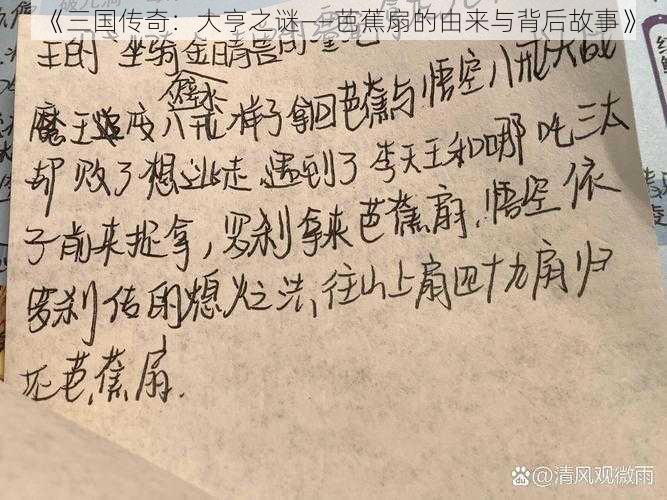 《三国传奇：大亨之谜——芭蕉扇的由来与背后故事》
王的 坐骑金睛兽
辟水
魔王 变 八戒 样子拿回芭蕉与悟空八戒大战
却败了想逃走,遇到了李天王和哪吒三太
子前来捉拿，罗刹拿来芭蕉扇,悟空依
罗刹传的熄火之法,往山上扇四十九扇归
还芭蕉扇.
@清风观微雨